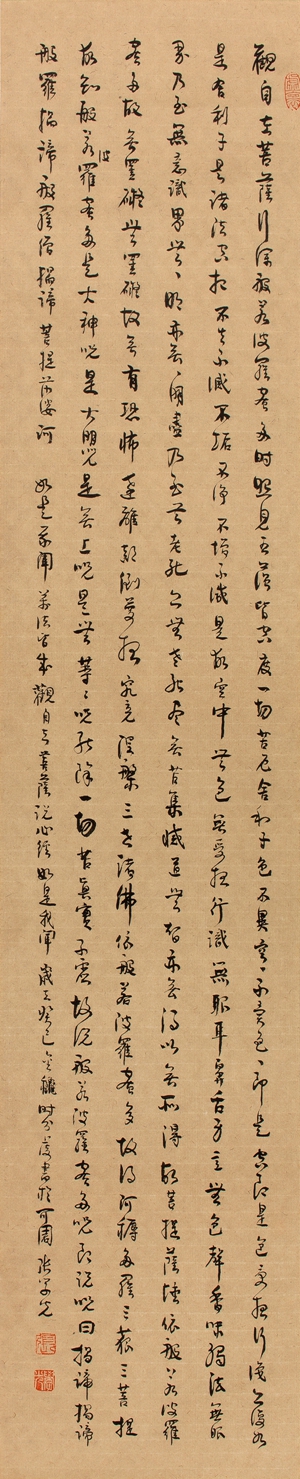 觀自在菩薩行深般若波羅蜜多時照見五蘊皆空度一切苦厄舍利子色不異空空不異色色即是空空即是色受想行識亦復如
是舍利子是諸法空相不生不滅不垢不淨不增不減是故空中無色無受想行識無眼耳鼻舌身意無色聲香味觸法無眼
界乃至無意識界無無明亦無無明盡乃至無老死亦無老死盡無苦集滅道無智亦無得以無所得故菩提薩埵依般若波羅
蜜多故心無罣礙無罣礙故無有恐怖遠離顛倒夢想究竟涅槃三世諸佛依般若波羅蜜多故得阿耨多羅三藐三菩提
故知般若波羅蜜多是大神咒是大明咒是無上咒是無等等咒能除一切苦真實不虛故說般若波羅蜜多咒即說咒曰揭諦揭諦
般羅揭諦般羅僧揭諦菩提薩婆訶 如是我聞 觀自在菩薩說心經如是我聞 歲在癸巳 時 書於可園